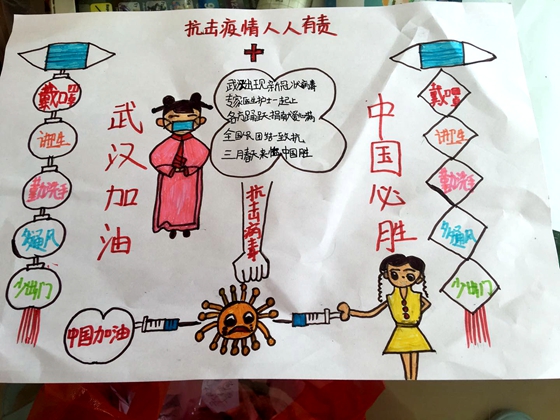 抗击疫情人人有责
戴口罩
讲卫生
勤洗手
多通风
少出门
武汉加油
武汉出现新冠状病毒
专家医生护士一起上
各方踊跃捐献
全国人民团结一致抗
三月春天来临中国胜
抗击病毒
中国必胜
戴口罩
讲卫生
勤洗手
多通风
少出门
中国加油